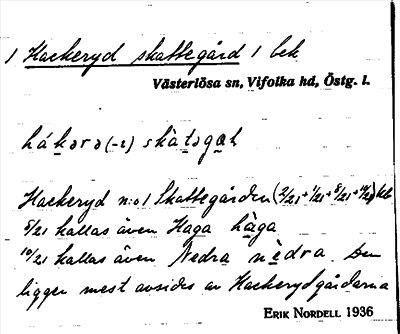 1 Hackeryd skattegård 1 bek
Västerlösa sn, Vifolka hd, Östg. l.
hákərə (-ɩ) skàtəgah
Hackeryd n:o 1 Skattegården (2/21 + 1/21 + 8/21 + 10/21) kb
8/21 kallas även Haga hàga
10/21 kallas även Nedra nèdra. Den
ligger mest avsides av Hackerydgårdarna
ERIK NORDELL 1936